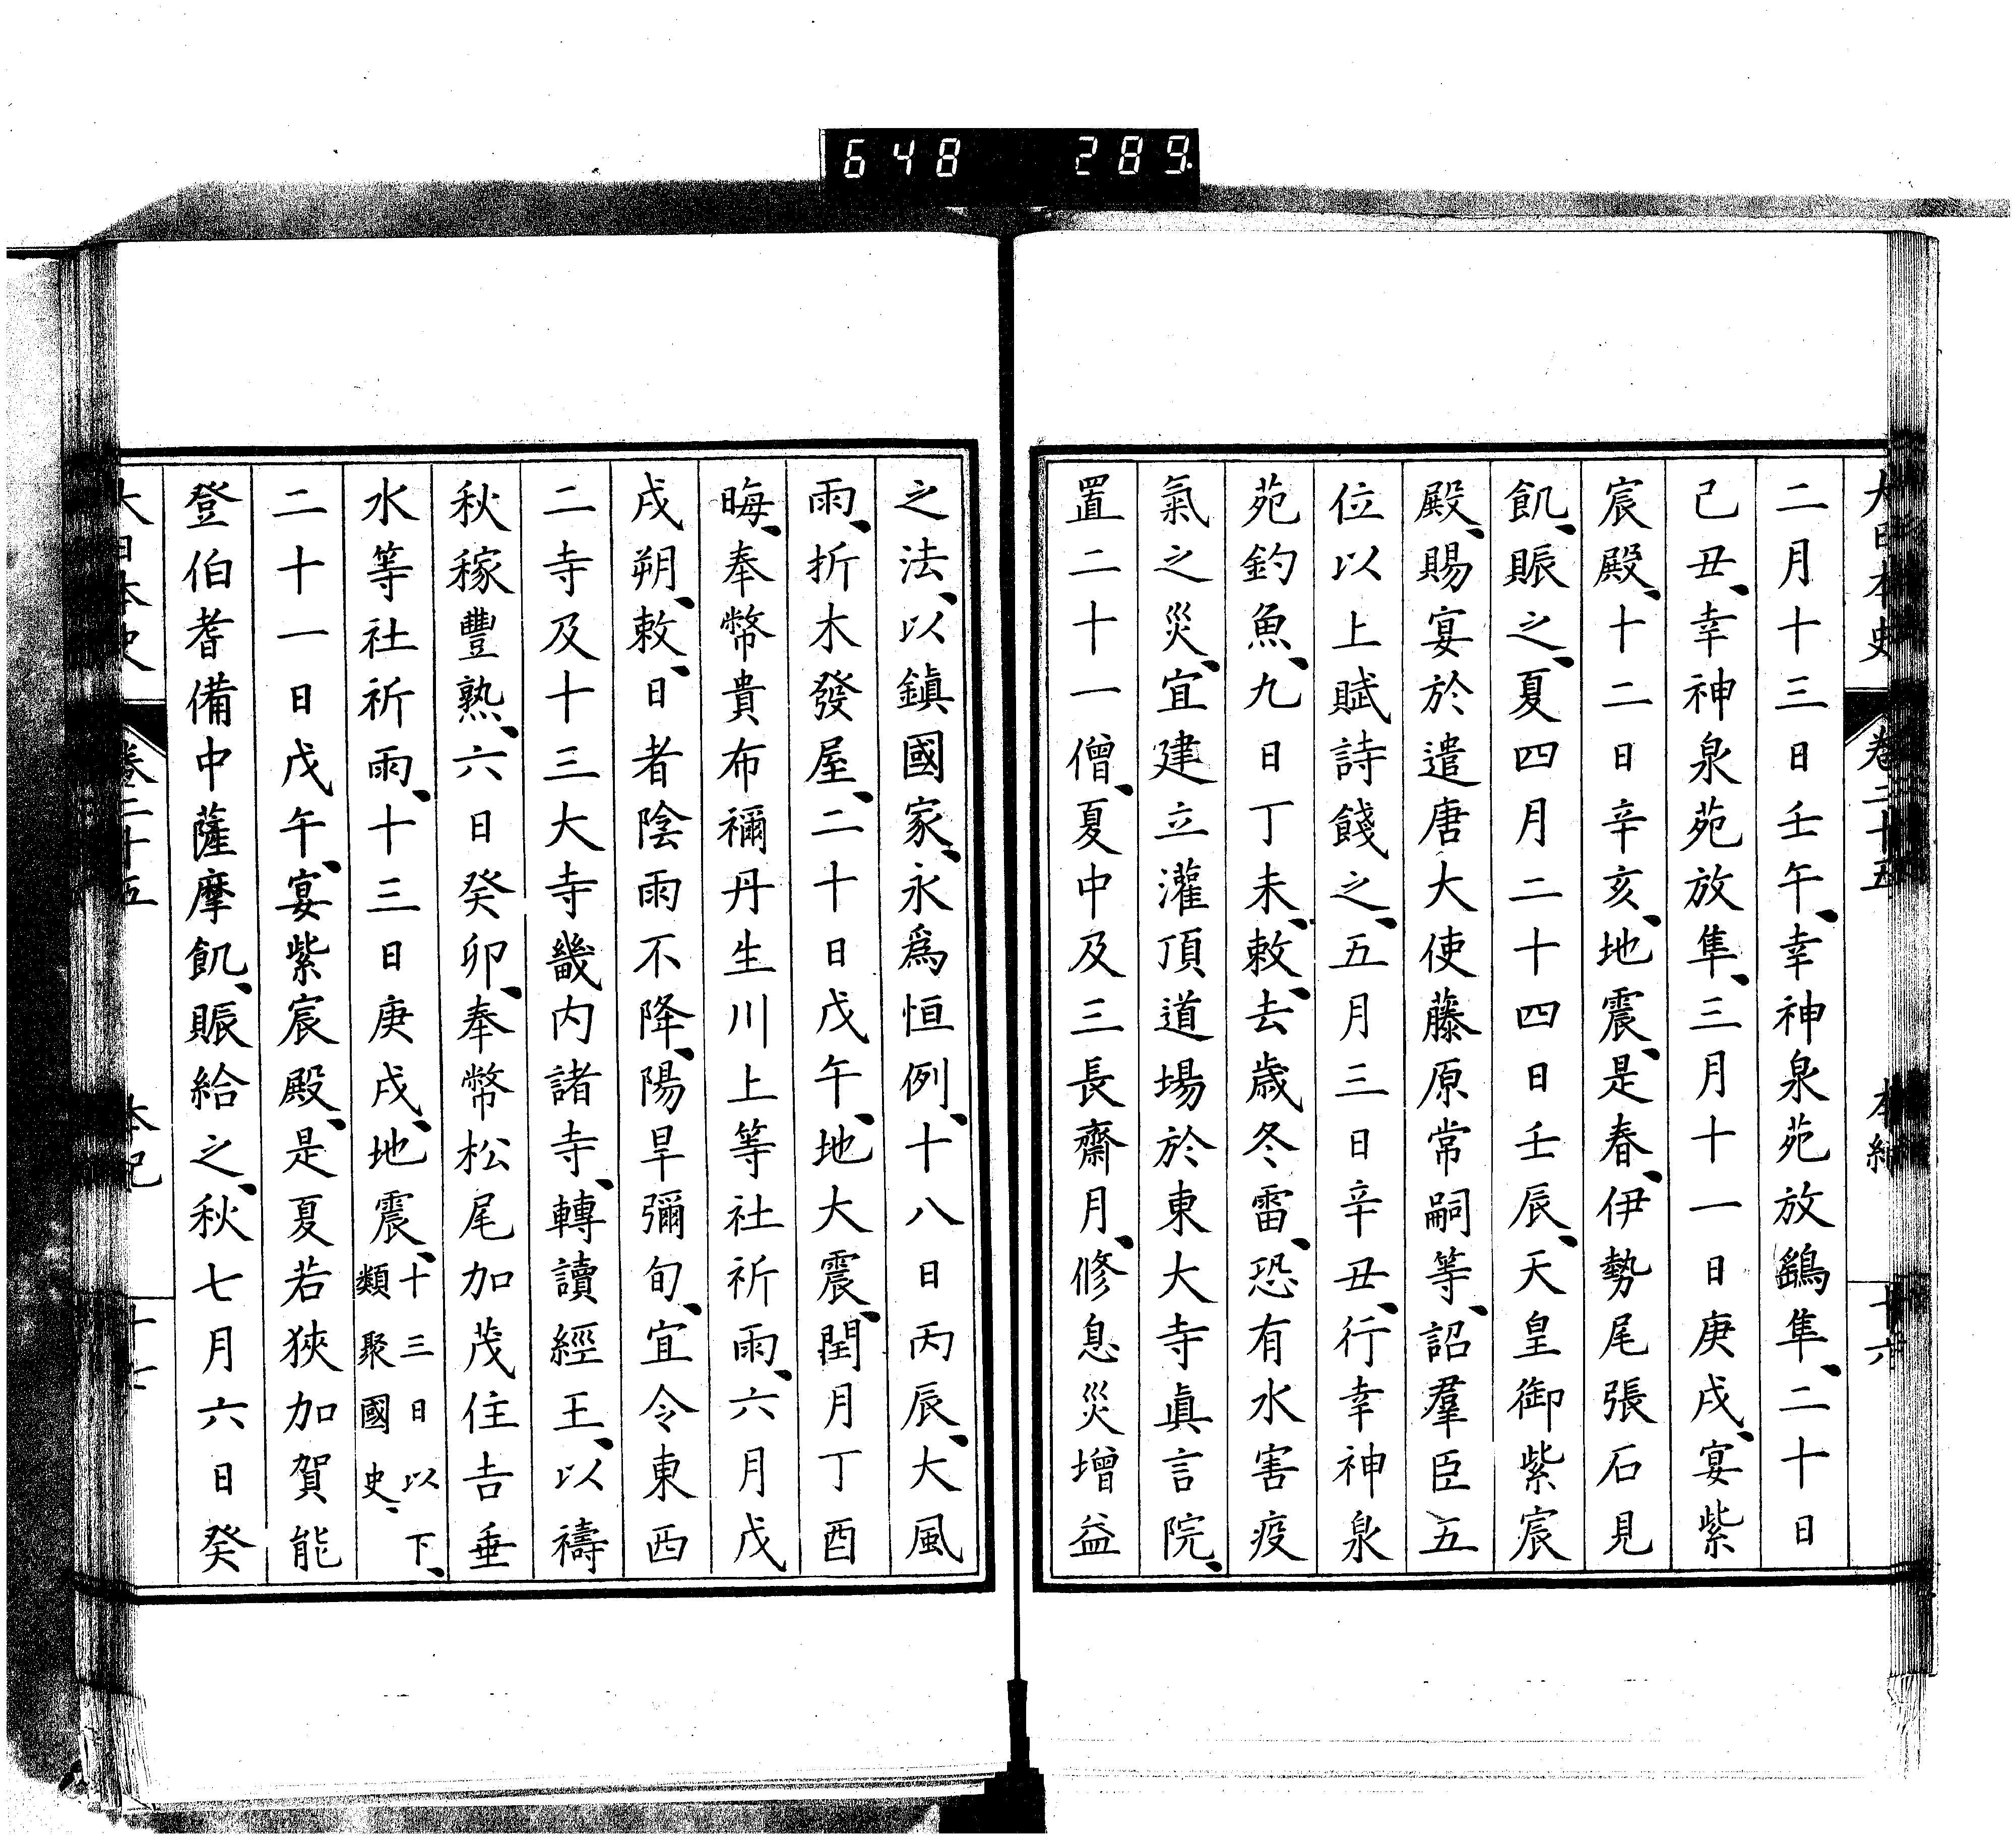 648 289
大日本史 卷二十五 本紀 十六
二月十三日壬午、幸神泉苑放鷂隼、二十日
己丑、幸神泉苑放隼、三月十一日庚戌、宴紫
宸殿、十二日辛亥、地震、是春、伊勢尾張石見
飢、賑之、夏四月二十四日壬辰、天皇御紫宸
殿、賜宴於遣唐大使藤原常嗣等、詔羣臣五
位以上賦詩餞之、五月三日辛丑、行幸神泉
苑釣魚、九日丁未、敕、去歲冬雷、恐有水害疫
氣之災、宜建立灌頂道場於東大寺眞言院、
置二十一僧、夏中及三長齋月、修息災增益
之法、以鎮國家、永爲恒例、十八日丙辰、大風
雨、折木發屋、二十日戊午、地大震、閏月丁酉
晦、奉幣貴布禰丹生川上等社祈雨、六月戊
戌朔、敕、日者陰雨不降、陽旱彌旬、宜令東西
二寺及十三大寺畿內諸寺、轉讀經王、以禱
秋稼豐熟、六日癸卯、奉幣松尾加茂住吉垂
水等社祈雨、十三日庚戌、地震、十三日以下、類聚國史、
二十一日戊午、宴紫宸殿、是夏若狹加賀能
登伯耆備中薩摩飢、賑給之、秋七月六日癸
大日本史 卷二十五 本紀 十七